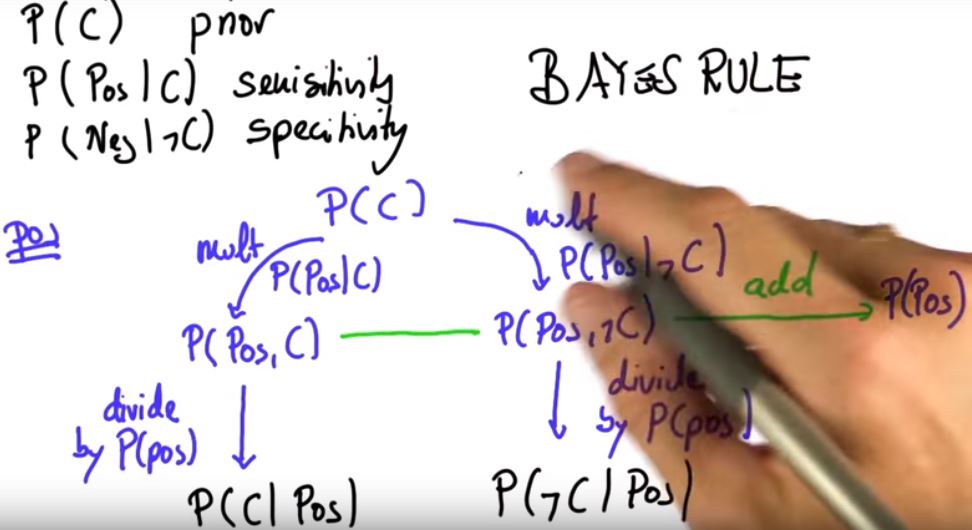 P(C) prior
P(Pos|C) sensitivity
P(Neg|¬C) specitivity
BAYES RULE
Pos
P(C)
mult
P(Pos|C)
mult
P(Pos|¬C)
add
P(Pos)
P(Pos,C)
P(Pos,¬C)
divide
by P(pos)
divide
by P(pos)
P(C|Pos)
P(¬C|Pos)